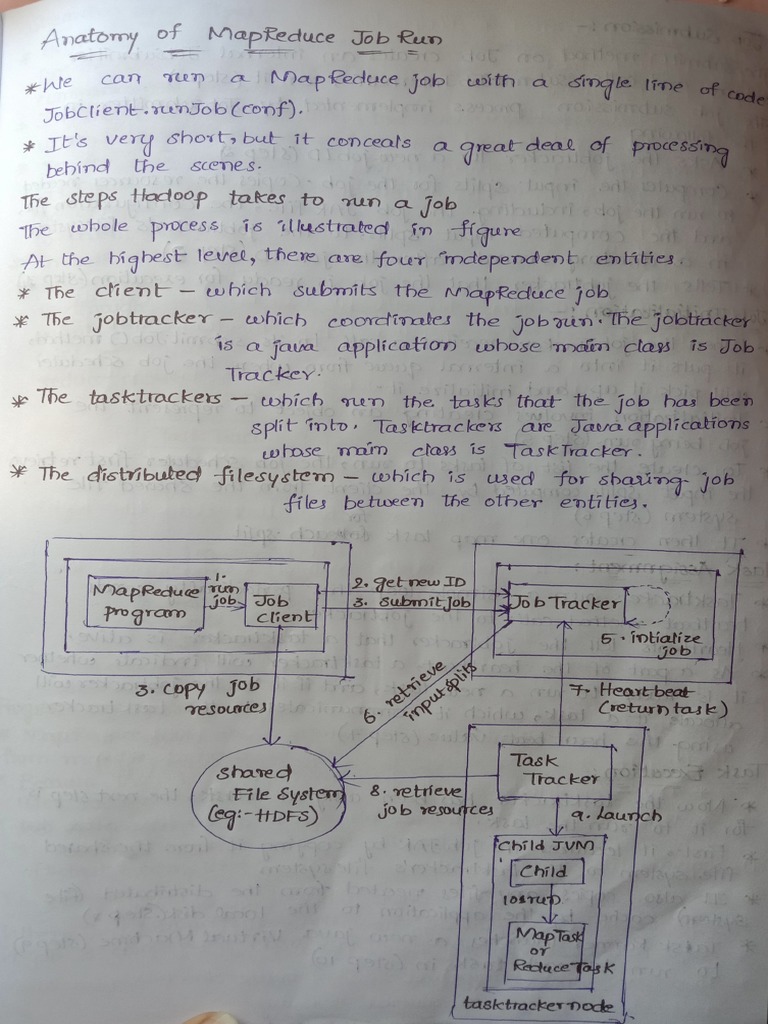 Anatomy of MapReduce Job Run
* We can run a MapReduce job with a single line of code
JobClient.runJob(conf).
* It's very short, but it conceals a great deal of processing
behind the scenes.
The steps Hadoop takes to run a job
The whole process is illustrated in figure
At the highest level, there are four independent entities.
* The client - which submits the MapReduce job
* The jobtracker - which coordinates the job run. The jobtracker
is a java application whose main class is Job
Tracker.
* The tasktrackers - which run the tasks that the job has been
split into. Tasktrackers are Java applications
whose main class is TaskTracker.
* The distributed filesystem - which is used for sharing job
files between the other entities.
MapReduce
program
1.
run
job
Job
client
2. get new ID
3. submit job
Job Tracker
5. intialize
job
3. copy job
resources
6. retrieve
input splits
7. Heartbeat
(return task)
Shared
File System
(eg:- HDFS)
8. retrieve
job resources
Task
Tracker
9. Launch
Child JVM
Child
10. run
MapTask
or
Reduce Task
tasktracker node